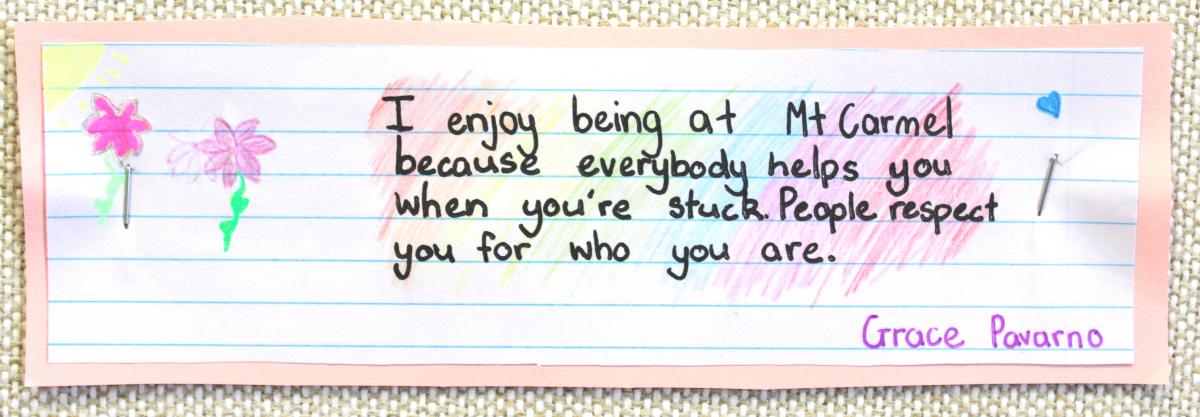 I enjoy being at Mt Carmel
because everybody helps you
when you're stuck. People respect
you for who you are.
Grace Pavarno